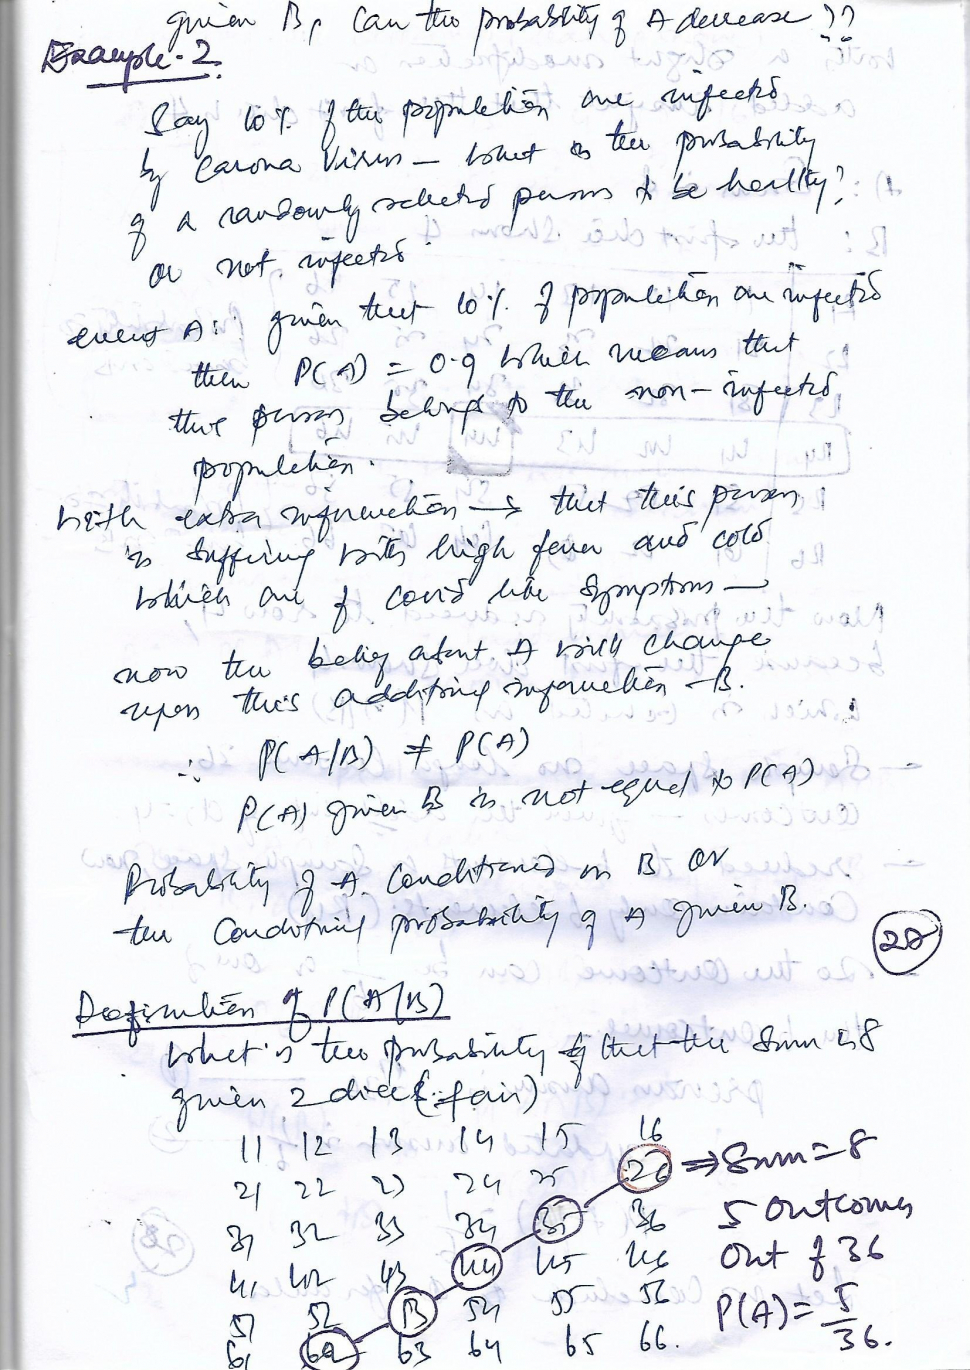 given B, Can the probability of A decrease ??
Example-2.
Say 10% of the population are infected
by Carona Virus - What is the probability
of a randomly selected person to be healthy?
or not infected
event A: given that 10% of population are infected
then P(A) = 0.9 which means that
this person belongs to the non-infected
population.
With extra information → that this person
is suffering with high fever and cold
which are of covid like symptoms —
now the belief about A will change
upon this additional information - B.
∴ P(A/B) ≠ P(A)
P(A) given B is not equal to P(A)
Probability of A Conditioned on B OR
the Conditional probability of A given B.
Definition of P(A/B)
What is the probability of that the Sum is 8
given 2 dice (fair)
11 12 13 14 15 16
21 22 23 24 25 26 ⇒ Sum = 8
31 32 33 34 35 36 5 outcomes
41 42 43 44 45 46 Out of 36
51 52 53 54 55 56 P(A) = 5/36.
61 62 63 64 65 66.